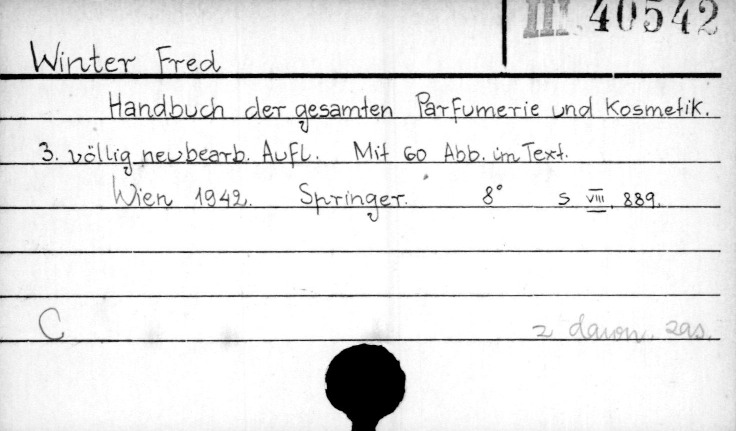 III. 40542
Winter Fred
Handbuch der gesamten Parfumerie und Kosmetik.
3. völlig neubearb. Aufl. Mit 60 Abb. im Text.
Wien 1942. Springer. 8° S VIII, 889.
C
z dawn. zas.